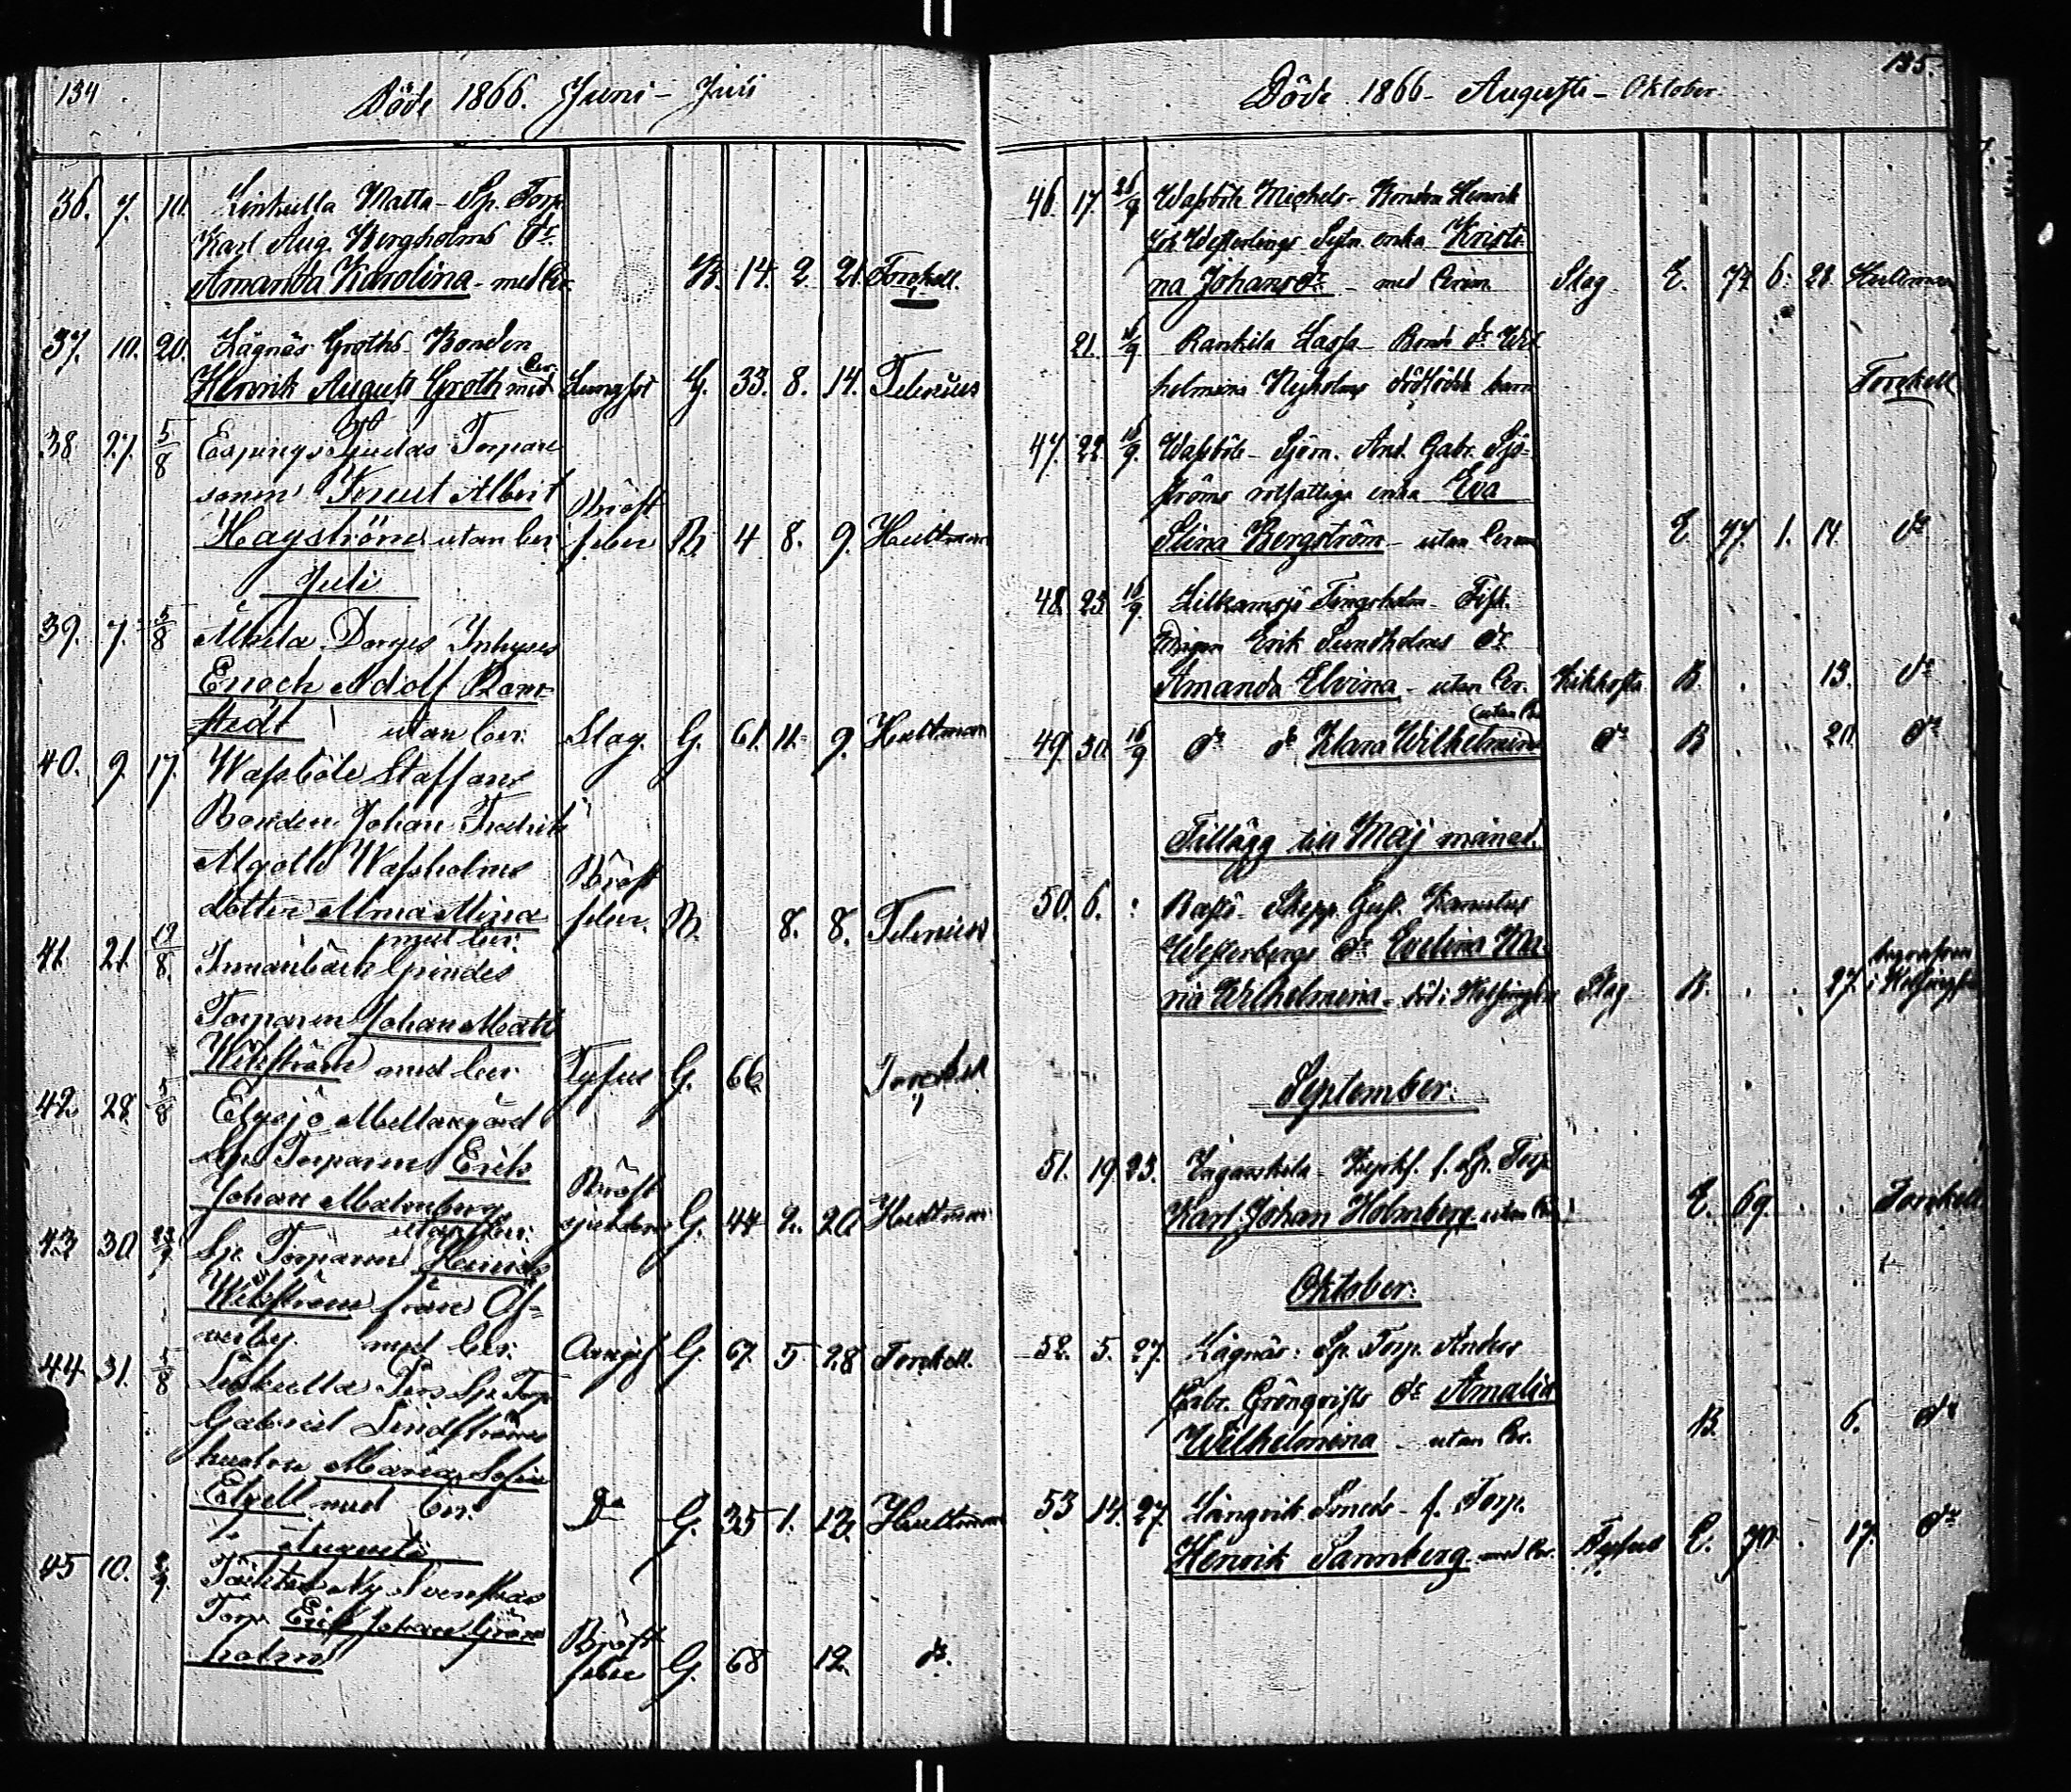 134
Döde 1866. Juni - Juli
36. 7. 10. Linkulla Matts - Sp. Torp.
Karl Aug. Bergholms dr.
Amanda Karolina - med Cer. B. 14. 2. 21. Torckell.
37. 10. 20. Lägnäs Groths Bonden
Henrik August Groth med Cer. Lungsot G. 33. 8. 14. Telenius
38. 27. 5/8 Espings Torpare
sonen Knut Albert Bröst
Hagström utan cer. feber B. 4 8. 9. Hultman
Juli
39. 7. 5/8 Åkila Dorjes Inhyses
Enoch Adolf
stedt utan Cer. Slag. G. 61. 11. 9. Hultman
40. 9. 17. Wassböle Staffans
Bonden Johan Fredrik
Algoth Wassholms Bröst
dotter Alma Mina feber. B. 8. 8. Telenius
med Cer.
41. 21. 12/8. Innanbäck Grindes
Torparen Johan Matts
Wikström med cer. Tyfus G. 66. Torckell
42. 28. 5/8 Elgsjö Mellangård
Sp. Torparen Erik Bröst
Johan Malmberg sjukdom G. 44 2. 20 Hultman
utan Cer.
43 30. 23/9 Sp. Torparen Henrik
Wikström från Öf-
verby. med Cer. G. 67. 5 28 Torckell.
44 31. 5/8 Linkulla Pers Sp. Torp.
Gabriel Lindströms
hustru Maria Sofia
Elgell med Cer. do G. 35 1. 13. Hultman
Augusti
45 10. 2/9. Täkter Ny Svenskas
Torp. Erik Johan Grön- Bröst
holm feber G. 68 12. do.
135.
Döde 1866 - Augusti - Oktober.
46. 17. 26/9 Wassböle Michels - Bonden Henrik
Joh. Westerlings Sytn. enka Kristi-
na Johansdr. - med Cerem. Slag E. 74 6. 28. Hultman
21. 16/9 Rankila Lassa Bond dr. Wil
helmina Nyholms dödfödda barn Torckell
47. 22. 16/9. Wassböle - Sjöm. And. Gabr. Sjö-
ströms rotfattiga enka Eva
Stina Bergström - utan Cerem E. 77. 1. 14. do
48. 25. 16/9. Lillkamsjö Tingsholm - Fisk.
Drängen Erik Sundholms dr.
Amanda Elvina - utan Cer. Kikhosta B. . . 13. do
49. 30. 16/9 do do Klara Wilhelmina utan Cer. do B . . 20. do
Tillägg till Maj månad.
50. 6. : Bastö - Skepp. Gust. Kanutus
Westerbergs dr. Evelina Ma-
ria Wilhelmina - död i Helsingfors Slag B. . . 27. begrafven i Helsingfors
September.
51. 19. 23. Ingarskila - Kyrkf. f. Sp. Torp
Karl Johan Holmberg utan Cer. E. 69. . . Torckell
Oktober.
52. 5. 27. Lägnäs: Sp. Torp. Anders
Gabr. Grönqvists dr. Amalia
Wilhelmina - utan Cer. B. 6. do
53 14. 27. Långvik Smeds - f. Torp.
Henrik Sannberg med Cer. Tyfus E. 70. . 17. do